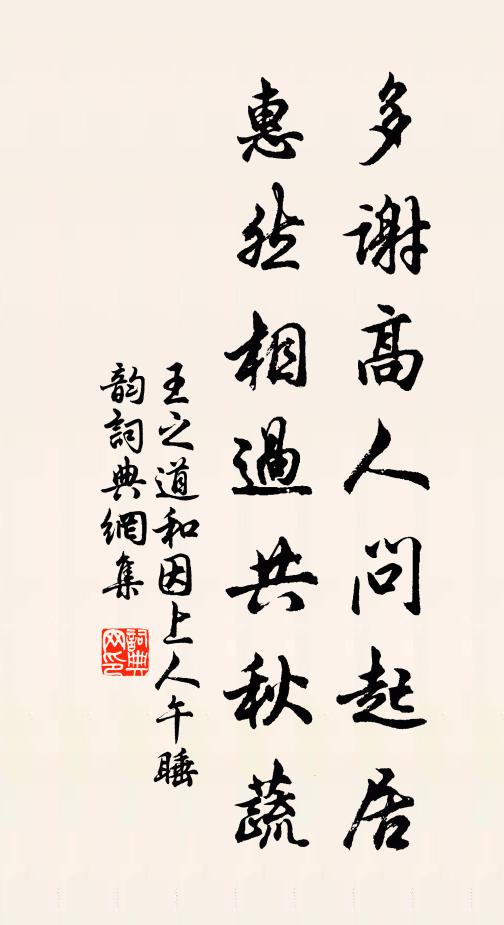 多谢高人问起居
惠然相過共秋蔬
王之道和因上人午睡
韵詞典網集
詞典网印